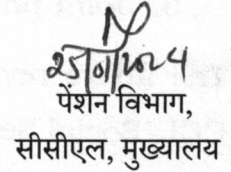 पेंशन विभाग,
सीसीएल, मुख्यालय